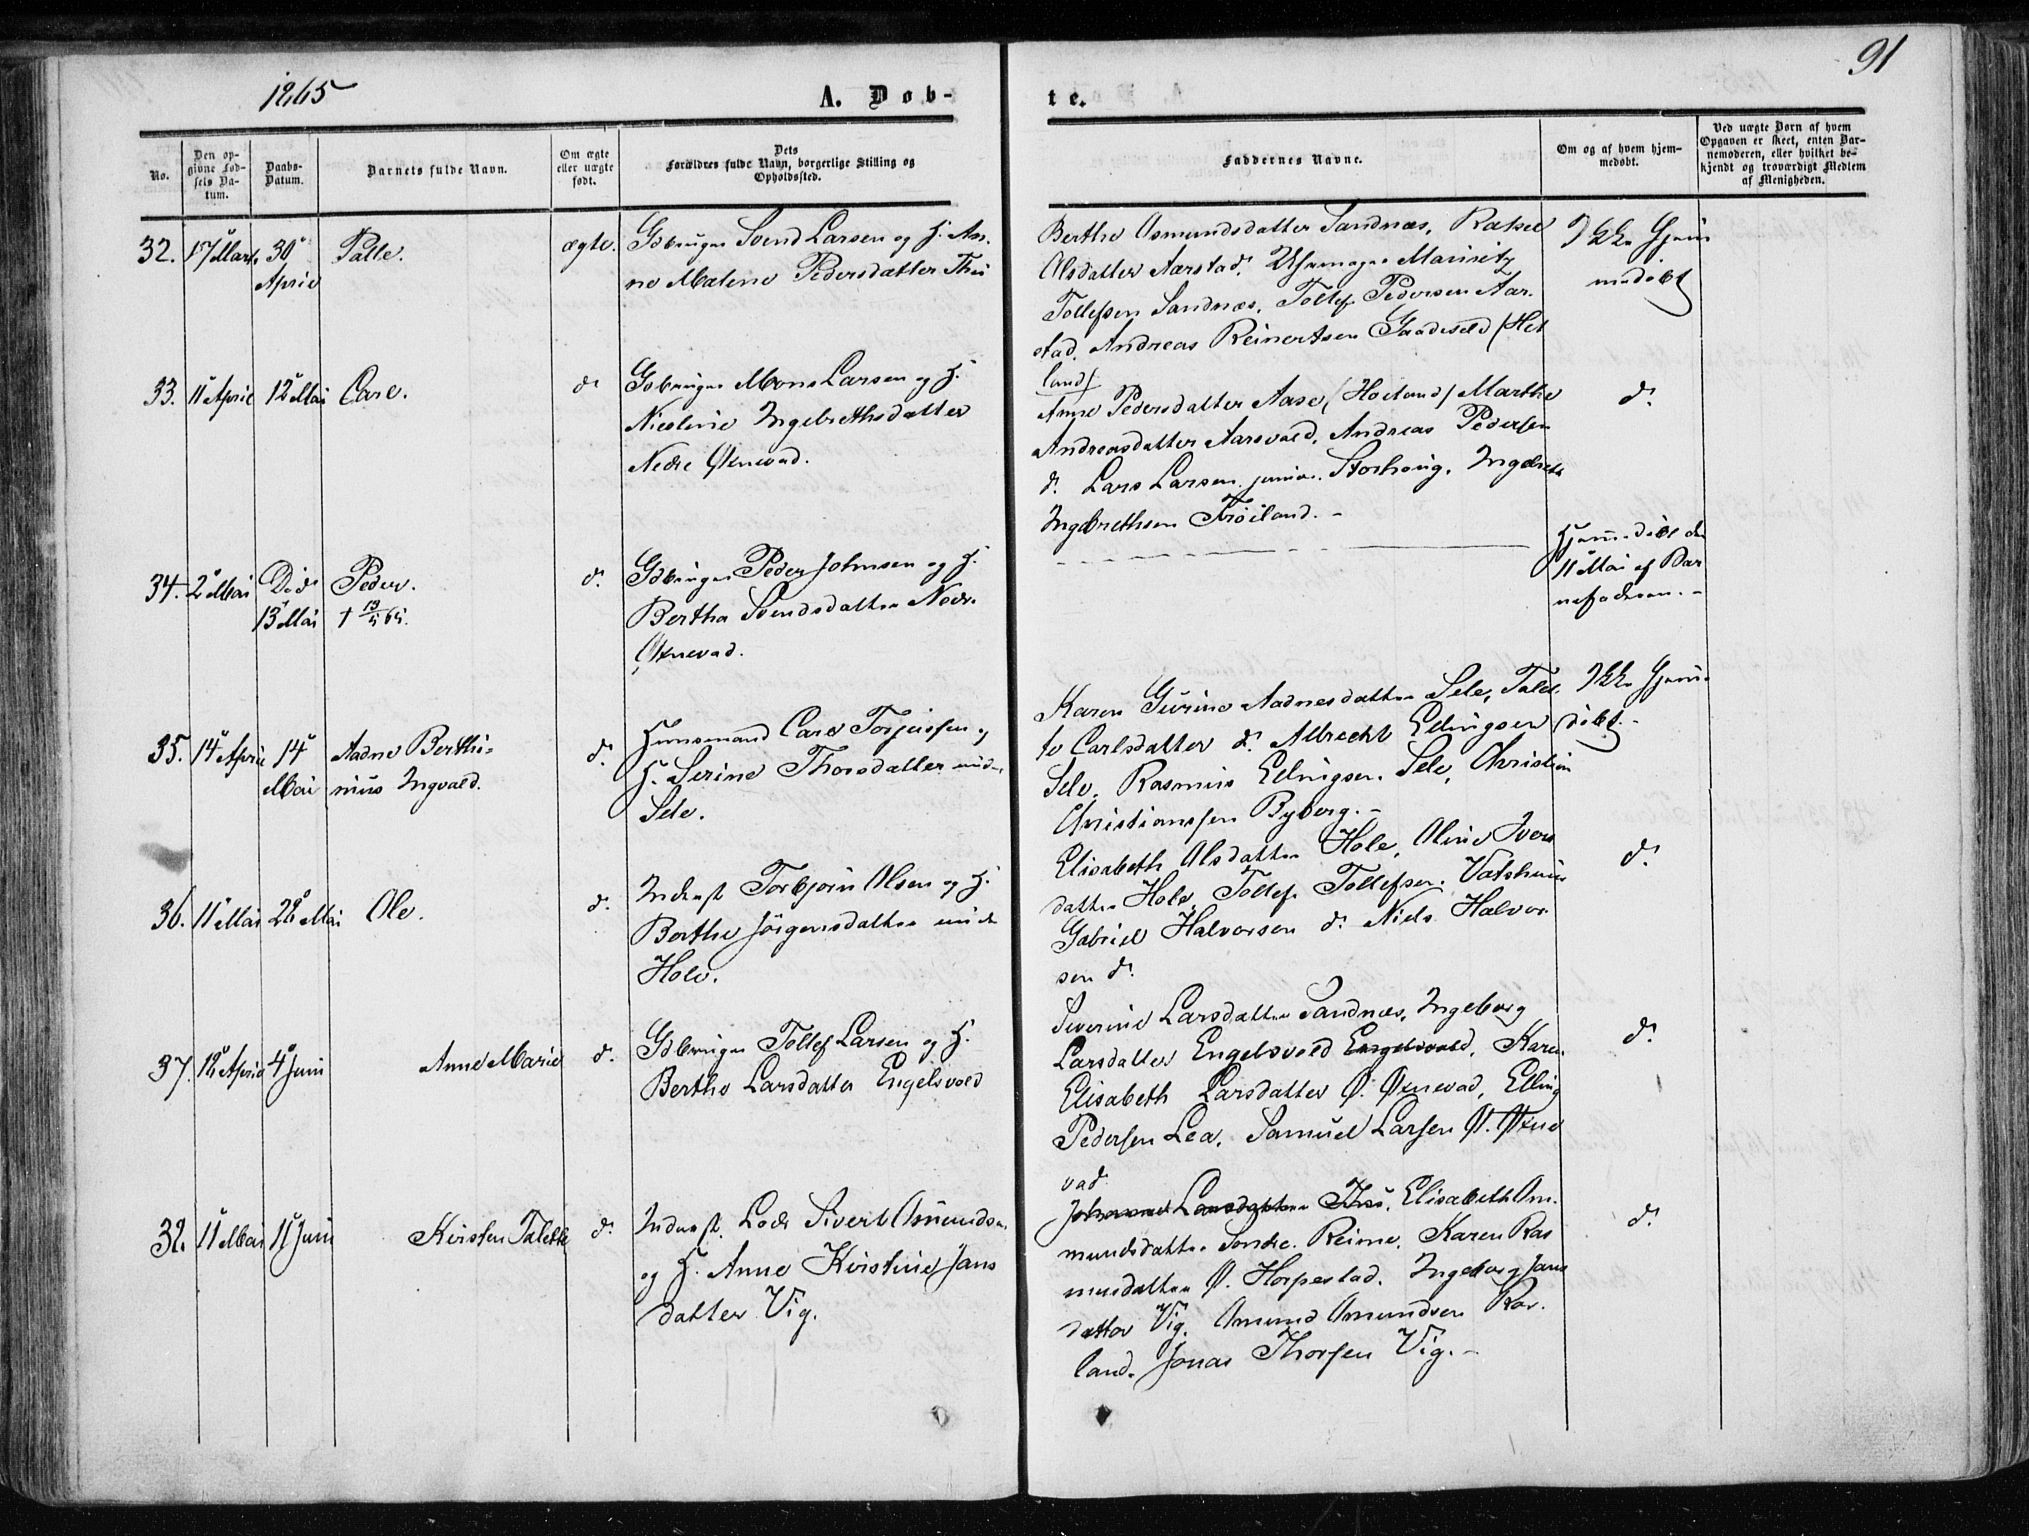 1865
A. Døb-
te.
91
No.
Den op-
givne Fød-
sels Da-
tum.
Daabs-
Datum.
Barnets fulde Navn.
Om ægte
eller uægte
født.
Dets
Forældres fulde Navn, borgerlige Stilling og
Opholdssted.
Faddernes Navne.
Om og af hvem hjem-
medøbt.
Ved uægte Børn af hvem
Opgaven er skeet, enten Bar-
nemoderen, eller hvilket be-
kjendt og troværdigt Medlem
af Menigheden.
32. 17 Marts 30 Palle. ægte. Gbruger Svend Larsen og H. An-
April ne Malene Pedersdatter Thu
Berthe Asmundsdatter Sandnæs, Rakel
Olsdatter Aarstad, Mauritz
Tollefsen Sandnæs, Tollef Pedersen Aar-
stad, Andreas Reinertsen Gaudeseld (Het
land)
Ikke Hjem
medøbt
33. 11 April 12 Mai Carl. d: Gbruger Mons Larsen og H.
Nicoline Ingebrethsdatter
Nedre Øxnevad.
Anne Pedersdatter Aase (Høiland) Marthe
Andreasdatter Aarsvold, Andreas Pedersen
d: Lars Larsen junior Storhoug, Ingebreth
Ingebrethsen Frøiland. -
d:
34. 2 Mai Død Peder. d: Gbruger Peder Johnsen og H.
13 Mai † 13/5 65. Bertha Svendsdatter Nedr.
Øxnevad.
Hjemmedøbt den
11 Mai af Bar
nefaderen. -
35. 14 April 14 Aadne Berthi- d: Huusmand Carl Torjussen og
Mai nius Ingvald. H. Serine Thorsdatter und.
Sele.
Karen Gurine Aadnesdatter Sele, Talet
te Carlsdatter d: Albrecht Ellingsen
Sele, Rasmus Ellingsen Sele, Christian
Christianssen Byberg. -
Ikke Hjem-
døbt. -
36. 11 Mai 28 Mai Ole. d: Inderst Torbjørn Olsen og H.
Berthe Jørgensdatter unde
Hole.
Elisabeth Olsdatter Hole, Oline Ivers
datter Hole, Tollef Tollefsen Vatshuus
Gabriel Halvorsen d: Niels Halvor-
sen d:
d:
37. 12 April 4 Juni Anne Marie d: Gbruger Tollef Larsen og H.
Berthe Larsdatter Engelsvold
Severine Larsdatter Sandnæs, Ingeborg
Larsdatter Engelsvold Engelsvold, Karen
Elisabeth Larsdatter Ø. Øxnevad, Elling
Pedersen Lea, Samuel Larsen Ø. Øxne
vad
d:
38. 11 Mai 11 Juni Kirsten Talette d: Inderst. Lods Sivert Asmunds.
og H. Anne Kirstine Jans
datter Vig.
Larsdatter Thu, Elisabeth Om-
mundsdatter Søndre Reime, Karen Ras
musdatter Ø. Horpestad, Ingeborg Jans
datter Vig, Omund Omundsen Rær-
land, Jonas Thorsen Vig. -
d: